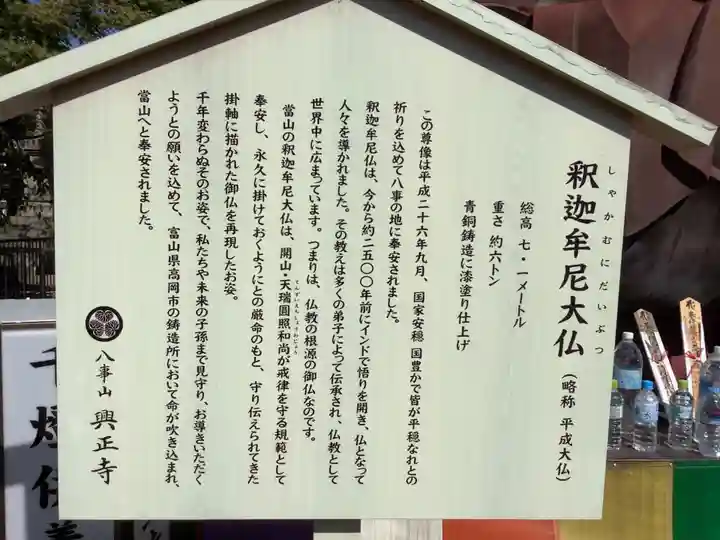 しゃかむにだいぶつ
釈迦牟尼大仏（略称 平成大仏）
総高 七・一メートル
重さ 約六トン
青銅鋳造に漆塗り仕上げ
この尊像は平成二十六年九月、国家安穏 国豊かで皆が平穏なれとの
祈りを込めて八事の地に奉安されました。
釈迦牟尼仏は、今から約二五〇〇年前にインドで悟りを開き、仏となって
人々を導かれました。その教えは多くの弟子によって伝承され、仏教として
世界中に広まっています。つまりは、仏教の根源の御仏なのです。
てんずいえんしょうわじょう
當山の釈迦牟尼大仏は、開山・天瑞圓照和尚が戒律を守る規範として
奉安し、永久に掛けておくようにとの厳命のもと、守り伝えられてきた
掛軸に描かれた御仏を再現したお姿。
千年変わらぬそのお姿で、私たちや未来の子孫まで見守り、お導きいただく
ようとの願いを込めて、富山県高岡市の鋳造所において命が吹き込まれ、
當山へと奉安されました。
八事山 興正寺
千燈供養